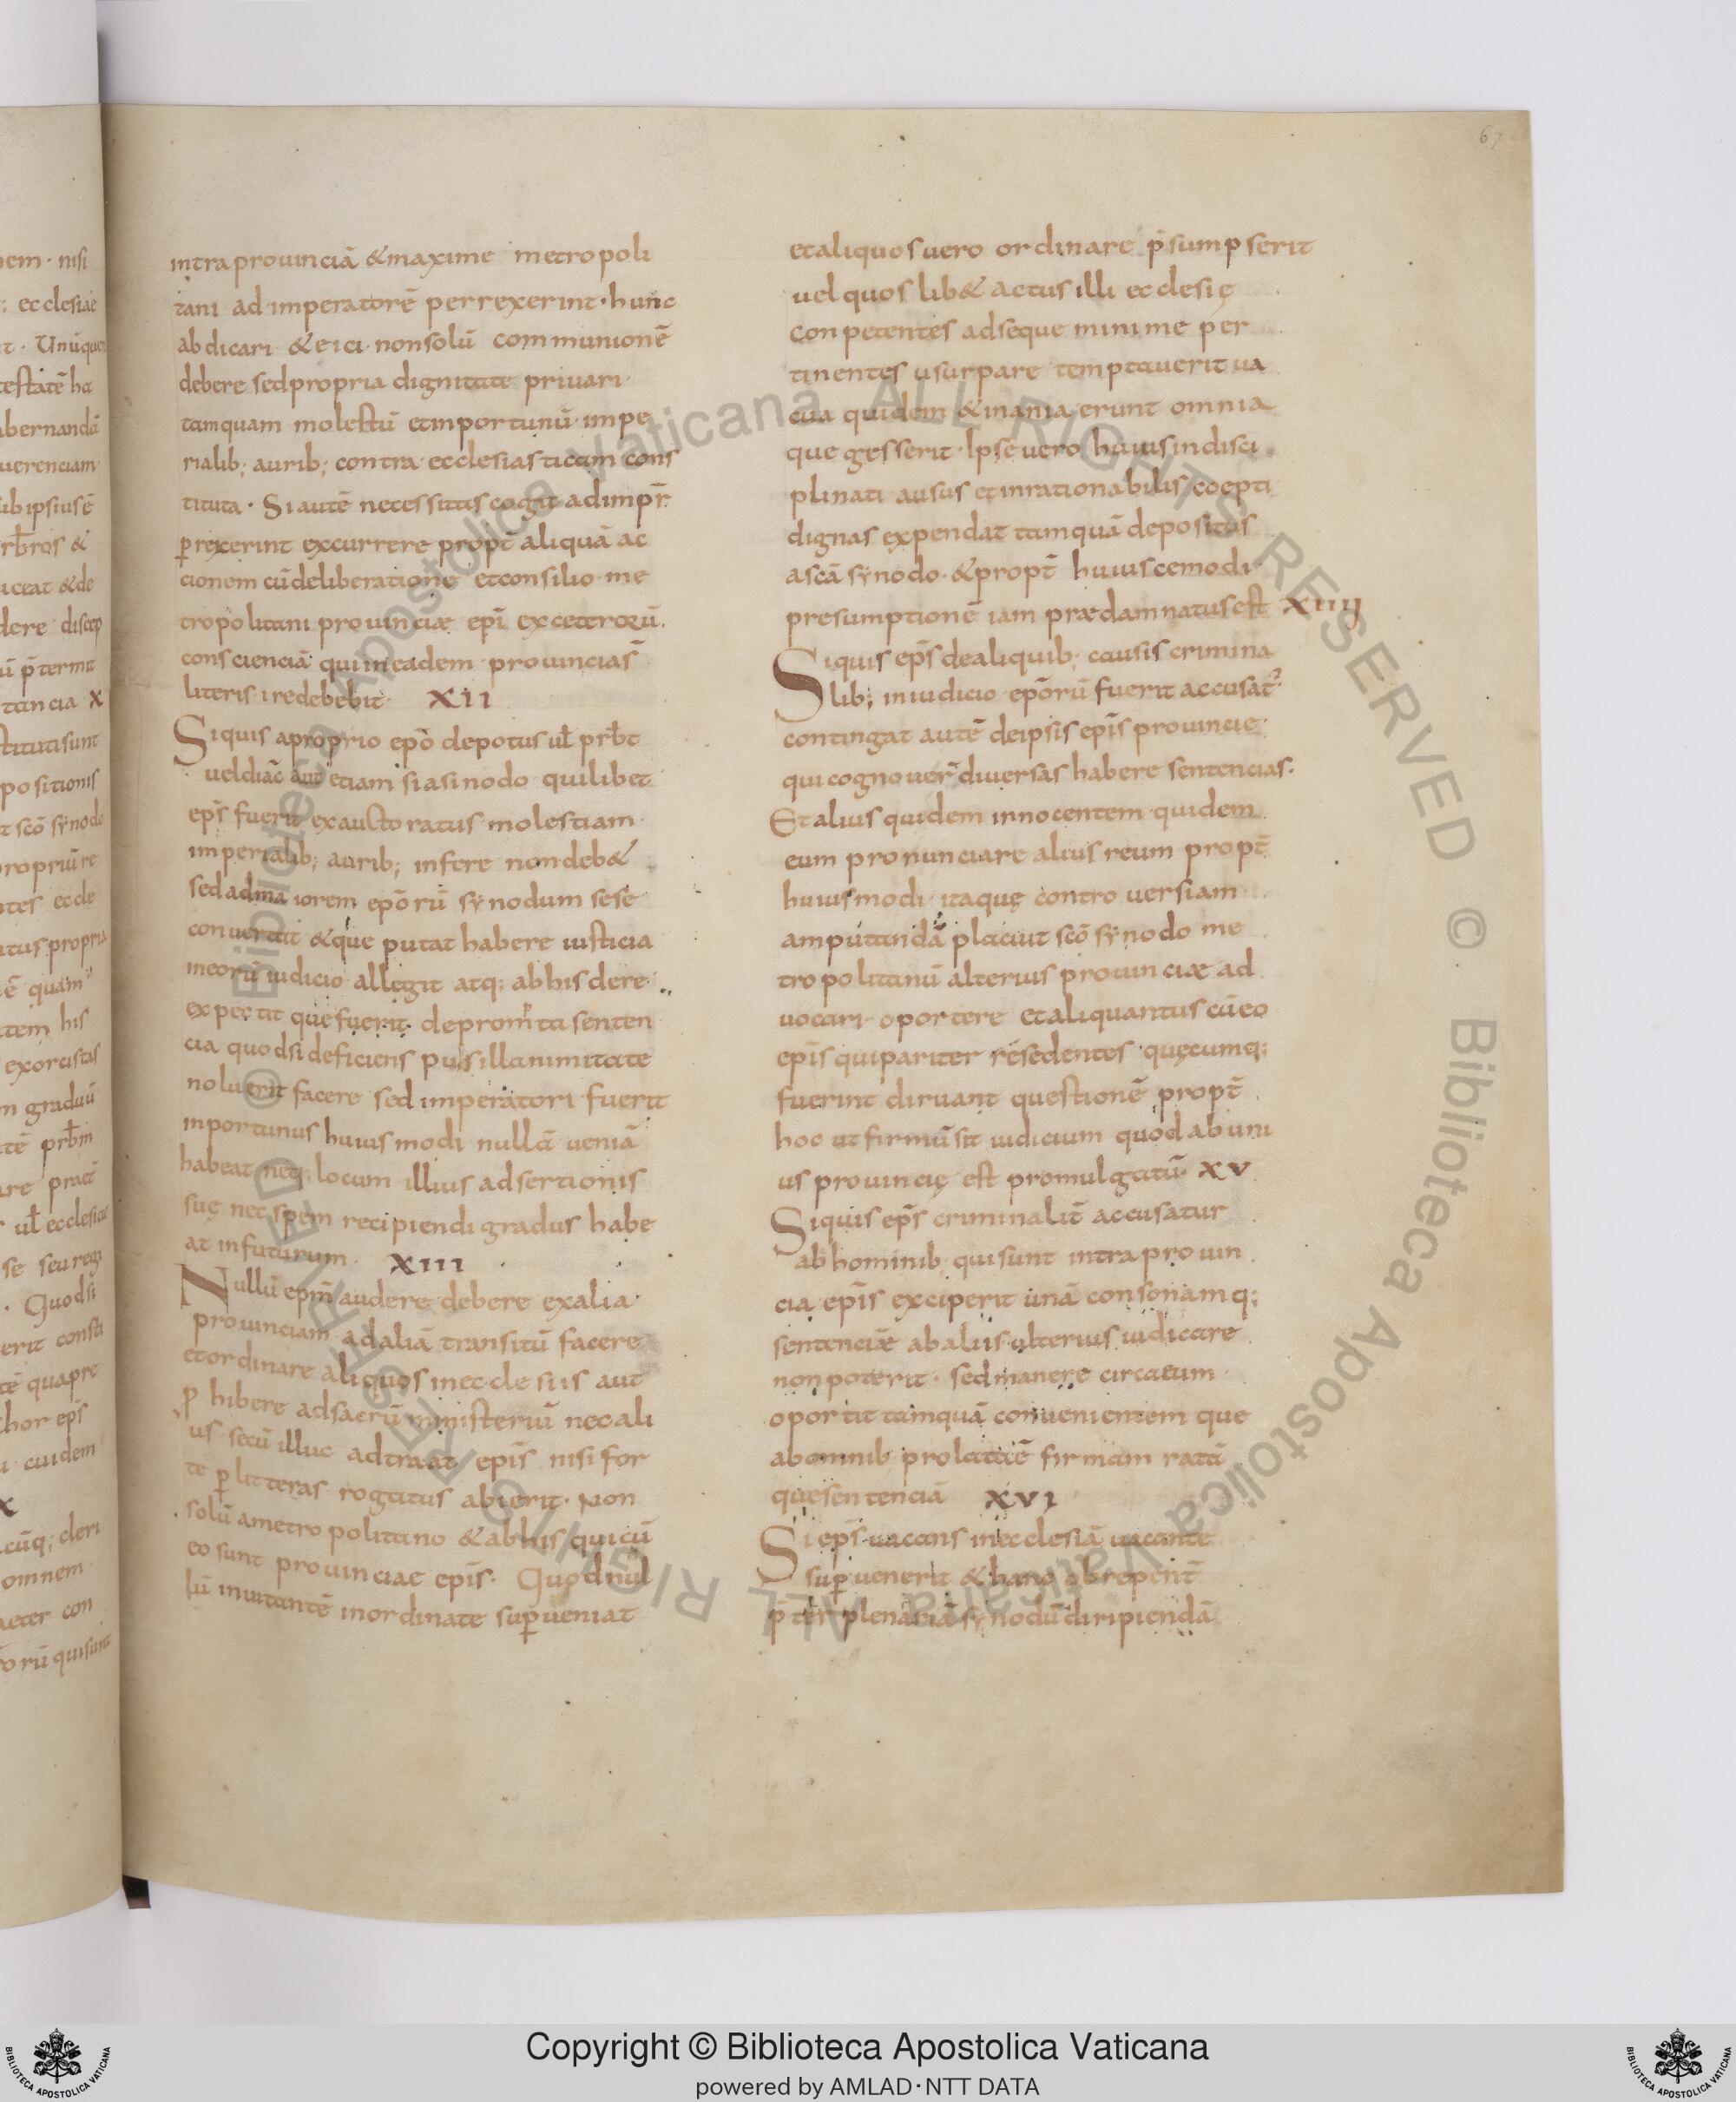 67
intra prouinciā & maxime metropoli
tani ad imperatorē perrexerint · hunc
abdicari & eici · non solū communionē
debere sed propria dignitate priuari
tamquam molestū et inportunū · impe
rialib; aurib; contra ecclesiasticam cons
tituta · Si autē necessitas cogit ad imp̄r
ꝑrexerint excurrere propt̄ aliquā ac
cionem cū deliberatione et consilio me
tropolitani prouinciæ ep̄i exceterorū
consciencia qui in eadem prouincia s̄
literis ire debebit · XII
Siquis aproprio ep̄o depotus ul̄ prb̄t
uel diac̄ aut etiam si asinodo quilibet
ep̄s fuerit exauctoratus molestiam
imperialib; aurib; infere non deb&
sed ad maiorem ep̄orū synodum sese
conuertat & que putat habere iusticia
meorū iudicio allegit atq; ab his dere
expectat que fuerit deprom̄ta senten
cia quodsi deficiens pusillanimitate
noluerit facere sed imperatori fuerit
inportunus huius modi nullā ueniā
habeat neq; locum illius adsertionis
suę nec spem recipiendi gradus habe
at infuturum · XIII
Nullū ep̄m audere debere exalia
prouinciam ad aliā transitū facere
et ordinare aliquos in eccle siis aut
ꝑ hibere ad sacrū ministeriū nec ali
us secū illuc adtraat ep̄is nisi for
te ꝑ litteras rogatus abierit · Non
solū ametropolitano & ab his qui cū
eo sunt prouinciae ep̄is · Quod nul
lū inuitantē inordinate suꝑueniat
et aliquos uero ordinare p̄sumpserit
uel quos lib& actus illi ecclesię
conpetentes ad seque minime per
tinentes usurpare temptauerit ua
cua quidem & inania erunt omnia
que gesserit · Ipse uero huius indisci
plinati ausus et inrationabilis coepti
dignas expendat tamquā depositus
ascā synodo · & propt̄ huiuscemodi
presumptionē iam prædamnatus est XIIII
Siquis ep̄s de aliquib; causis crimina
lib; in iudicio ep̄orū fuerit accusat᷒
contingat autē de ipsis ep̄is prouincie
qui cognouer̄ diuersas habere sentencias ·
Et alius quidem innocentem quidem
eum pronunciare alius reum propt̄
huiusmodi itaquę controuersiam
amputandā placuit scō synodo me
tropolitanū alterius prouinciæ ad
uocari oportere et aliquantus cū eo
ep̄is qui pariter resedentes quęcumq;
fuerint diruant questionē propt̄
hoc ut firmū sit iudicium quod ab uni
us prouincię est promulgatū · XV
Siquis ep̄s criminalit̄ accusatur
ab hominib qui sunt intra prouin
cia ep̄is exciperit unā consonamq;
sentenciæ ab aliis ulterius iudicare
non poterit · sed manere circa eum
oportit tamquā conuenientem que
ab omnib prolatāē firmam ratā
que sentenciā XVI
Si ep̄s uacans in ecclesiā uacante
suꝑuenerit & hanc obrepent̄
p̄ter plenariā synodū diripiendā
Copyright © Biblioteca Apostolica Vaticana
powered by AMLAD·NTT DATA